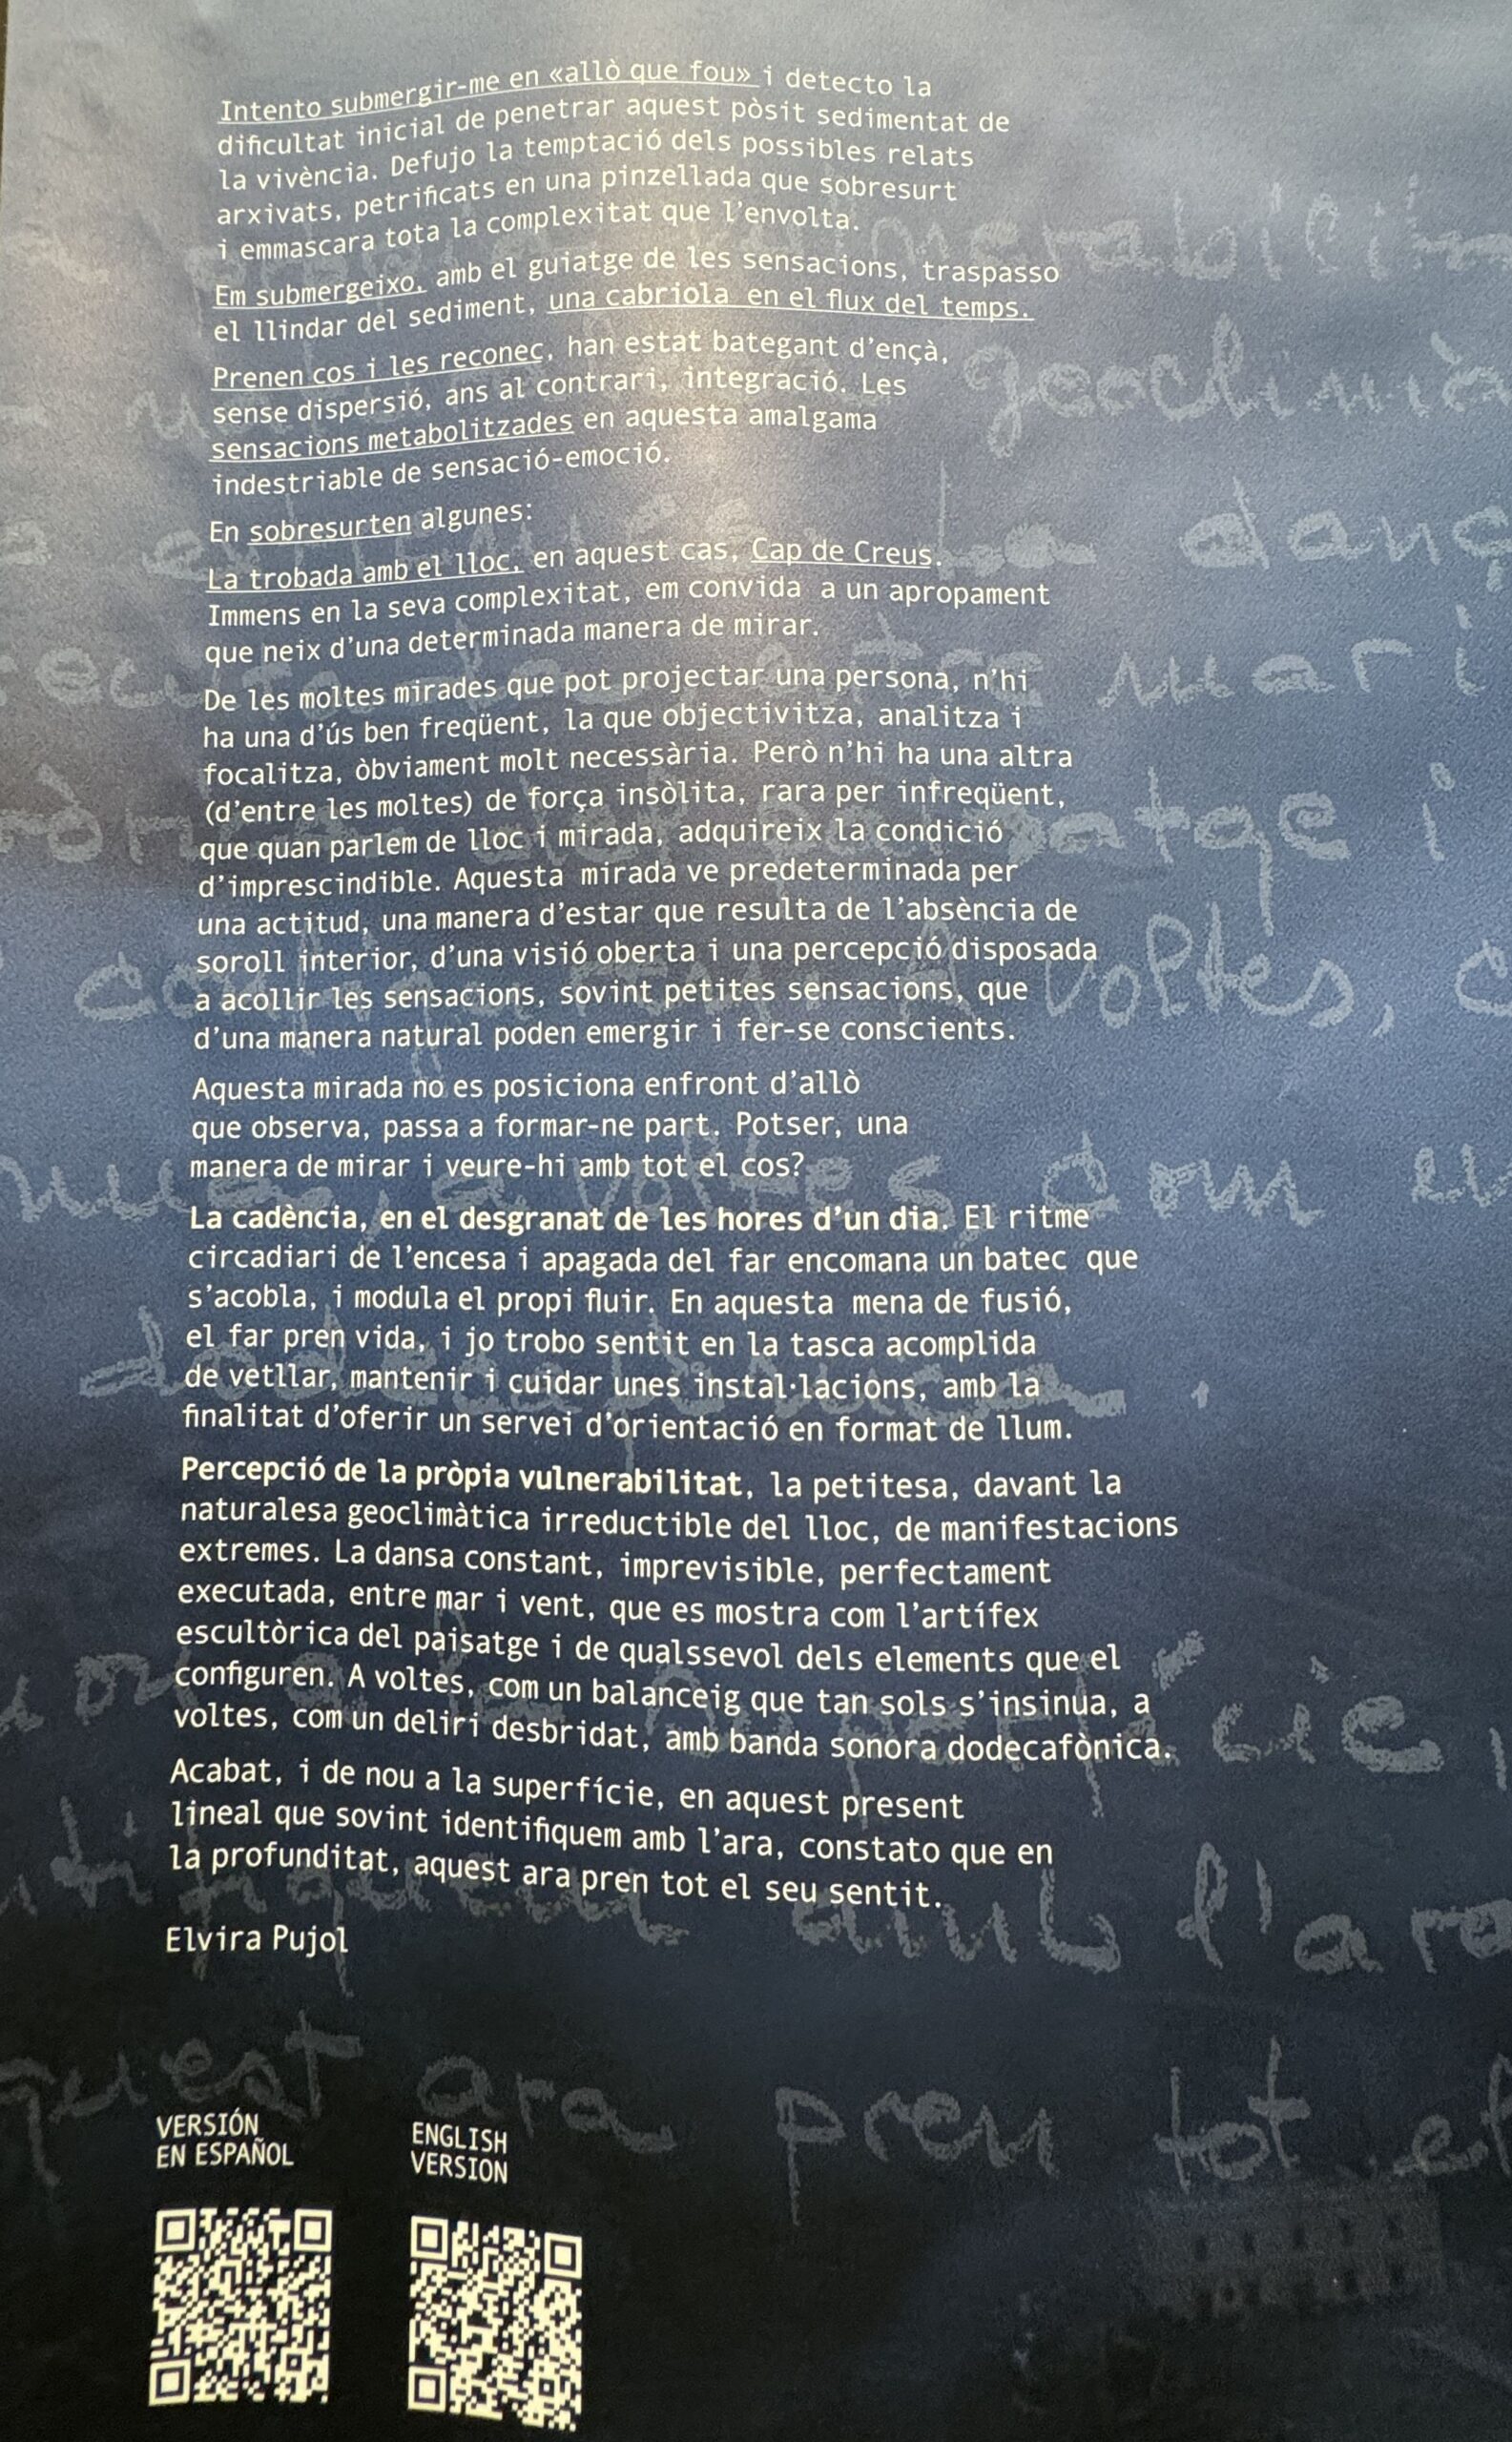 Intento submergir-me en «allò que fou» i detecto la
dificultat inicial de penetrar aquest pòsit sedimentat de
la vivència. Defujo la temptació dels possibles relats
arxivats, petrificats en una pinzellada que sobresurt
i emmascara tota la complexitat que l'envolta.
Em submergeixo, amb el guiatge de les sensacions, traspasso
el llindar del sediment, una cabriola en el flux del temps.
Prenen cos i les reconec, han estat bategant d'ençà,
sense dispersió, ans al contrari, integració. Les
sensacions metabolitzades en aquesta amalgama
indestriable de sensació-emoció.
En sobresurten algunes:
La trobada amb el lloc, en aquest cas, Cap de Creus.
Immens en la seva complexitat, em convida a un apropament
que neix d'una determinada manera de mirar.
De les moltes mirades que pot projectar una persona, n'hi
ha una d'ús ben freqüent, la que objectivitza, analitza i
focalitza, òbviament molt necessària. Però n'hi ha una altra
(d'entre les moltes) de força insòlita, rara per infreqüent,
que quan parlem de lloc i mirada, adquireix la condició
d'imprescindible. Aquesta mirada ve predeterminada per
una actitud, una manera d'estar que resulta de l'absència de
soroll interior, d'una visió oberta i una percepció disposada
a acollir les sensacions, sovint petites sensacions, que
d'una manera natural poden emergir i fer-se conscients.
Aquesta mirada no es posiciona enfront d'allò
que observa, passa a formar-ne part. Potser, una
manera de mirar i veure-hi amb tot el cos?
La cadència, en el desgranat de les hores d'un dia. El ritme
circadiari de l'encesa i apagada del far encomana un batec que
s'acobla, i modula el propi fluir. En aquesta mena de fusió,
el far pren vida, i jo trobo sentit en la tasca acomplida
de vetllar, mantenir i cuidar unes instal·lacions, amb la
finalitat d'oferir un servei d'orientació en format de llum.
Percepció de la pròpia vulnerabilitat, la petitesa, davant la
naturalesa geoclimàtica irreductible del lloc, de manifestacions
extremes. La dansa constant, imprevisible, perfectament
executada, entre mar i vent, que es mostra com l'artífex
escultòrica del paisatge i de qualssevol dels elements que el
configuren. A voltes, com un balanceig que tan sols s'insinua, a
voltes, com un deliri desbridat, amb banda sonora dodecafònica.
Acabat, i de nou a la superfície, en aquest present
lineal que sovint identifiquem amb l'ara, constato que en
la profunditat, aquest ara pren tot el seu sentit.
Elvira Pujol
VERSIÓN
EN ESPAÑOL
ENGLISH
VERSION